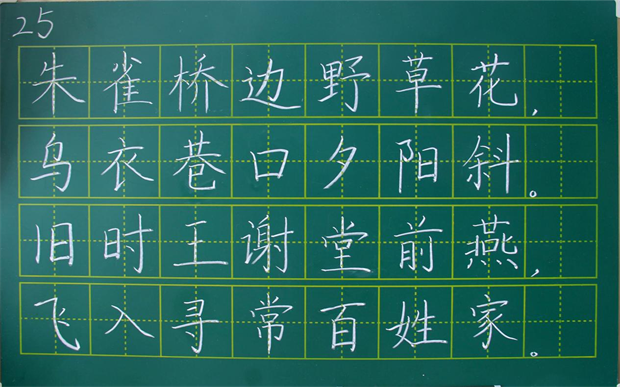 25
朱雀桥边野草花，
乌衣巷口夕阳斜。
旧时王谢堂前燕，
飞入寻常百姓家。